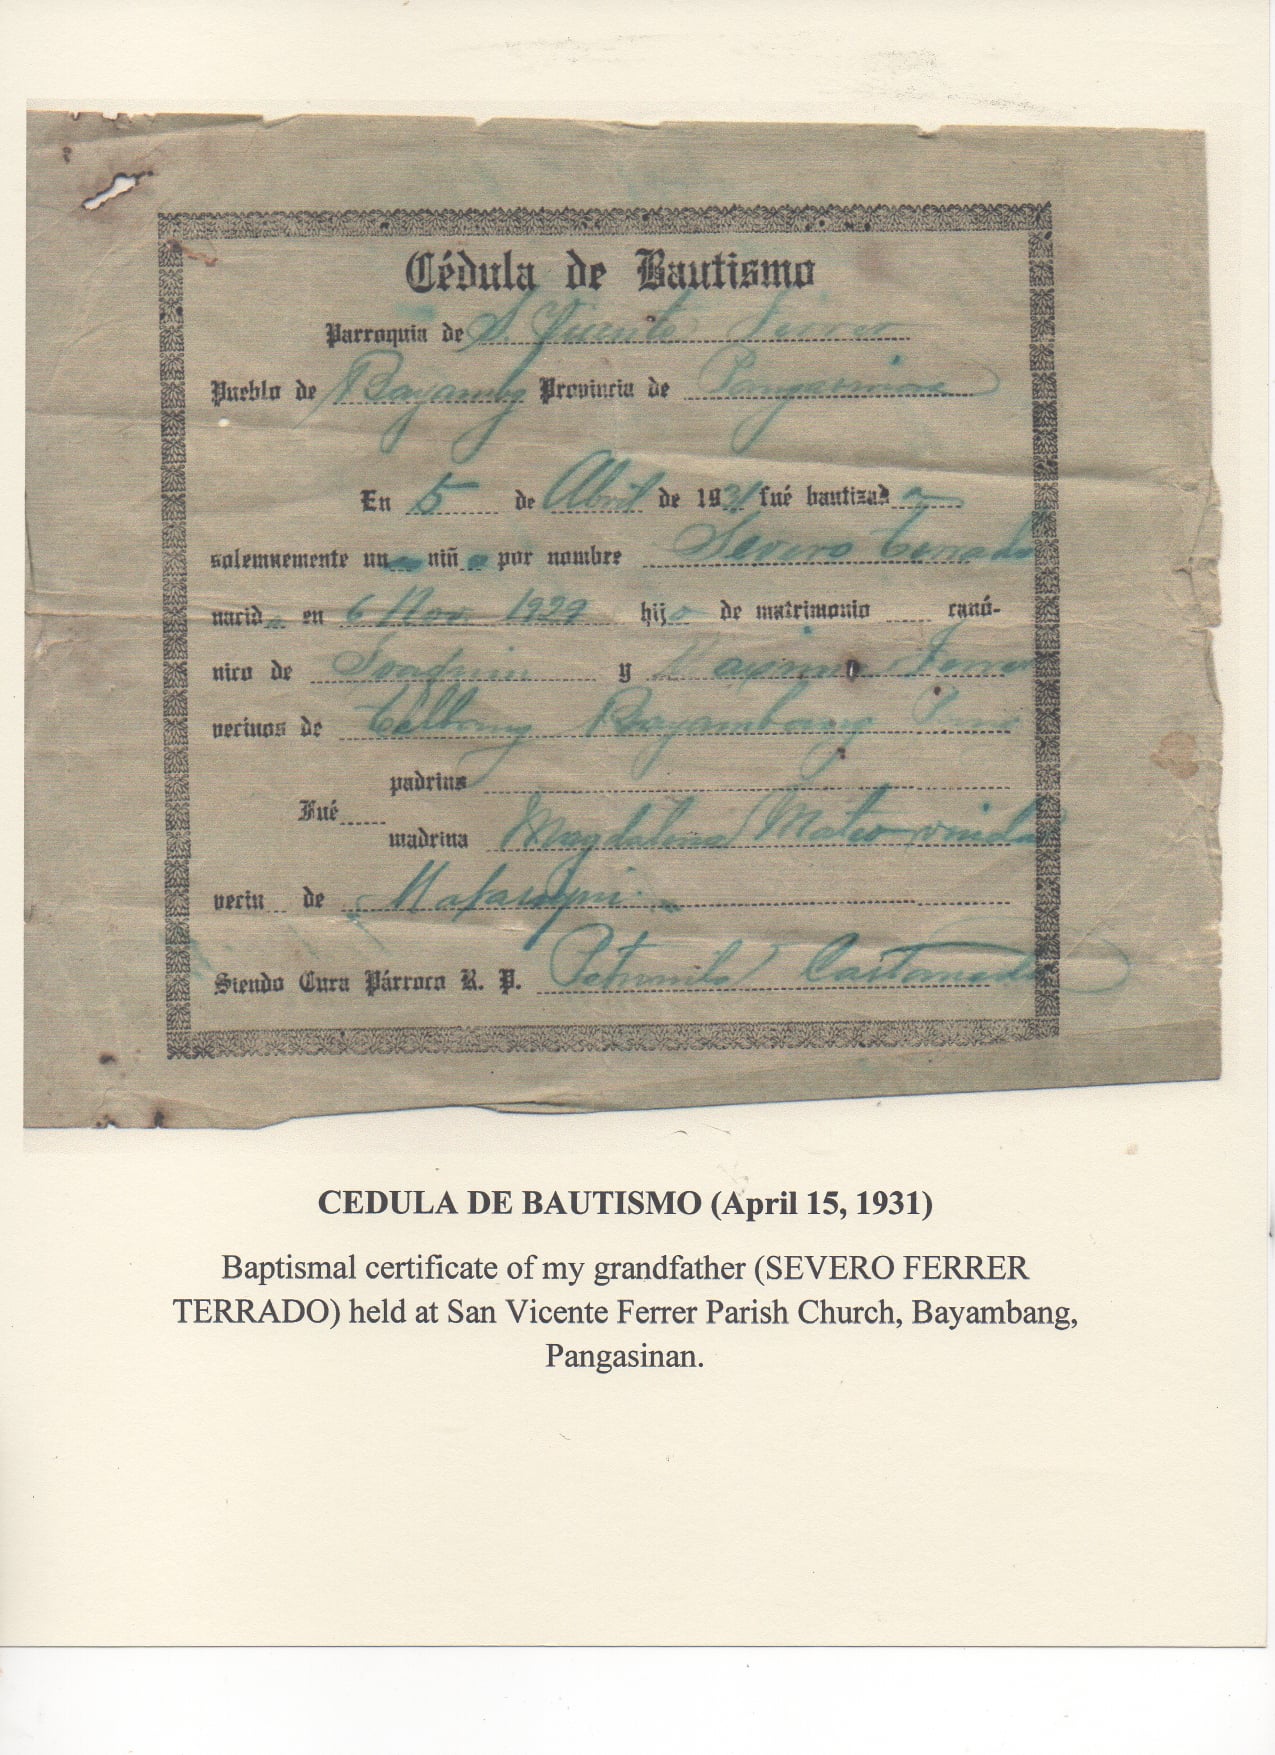 Cédula de Bautismo
Parroquia de S. Vicente Ferrer
Pueblo de Bayambg Provincia de Pangasinan
En 5 de Abril de 1931 fué bautizad o
solemnemente un niñ o por nombre Severo Terrado
nacid o en 6 Nov. 1929 hijo de matrimonio canó-
nico de Joaquin y Maxima Ferrer
vecinos de Bayambang Pang
padrino
Fué
madrina Magdalena Mateo viuda
vecin de
Siendo Cura Párroco R. P. Petronilo Castañeda
CEDULA DE BAUTISMO (April 15, 1931)
Baptismal certificate of my grandfather (SEVERO FERRER
TERRADO) held at San Vicente Ferrer Parish Church, Bayambang,
Pangasinan.